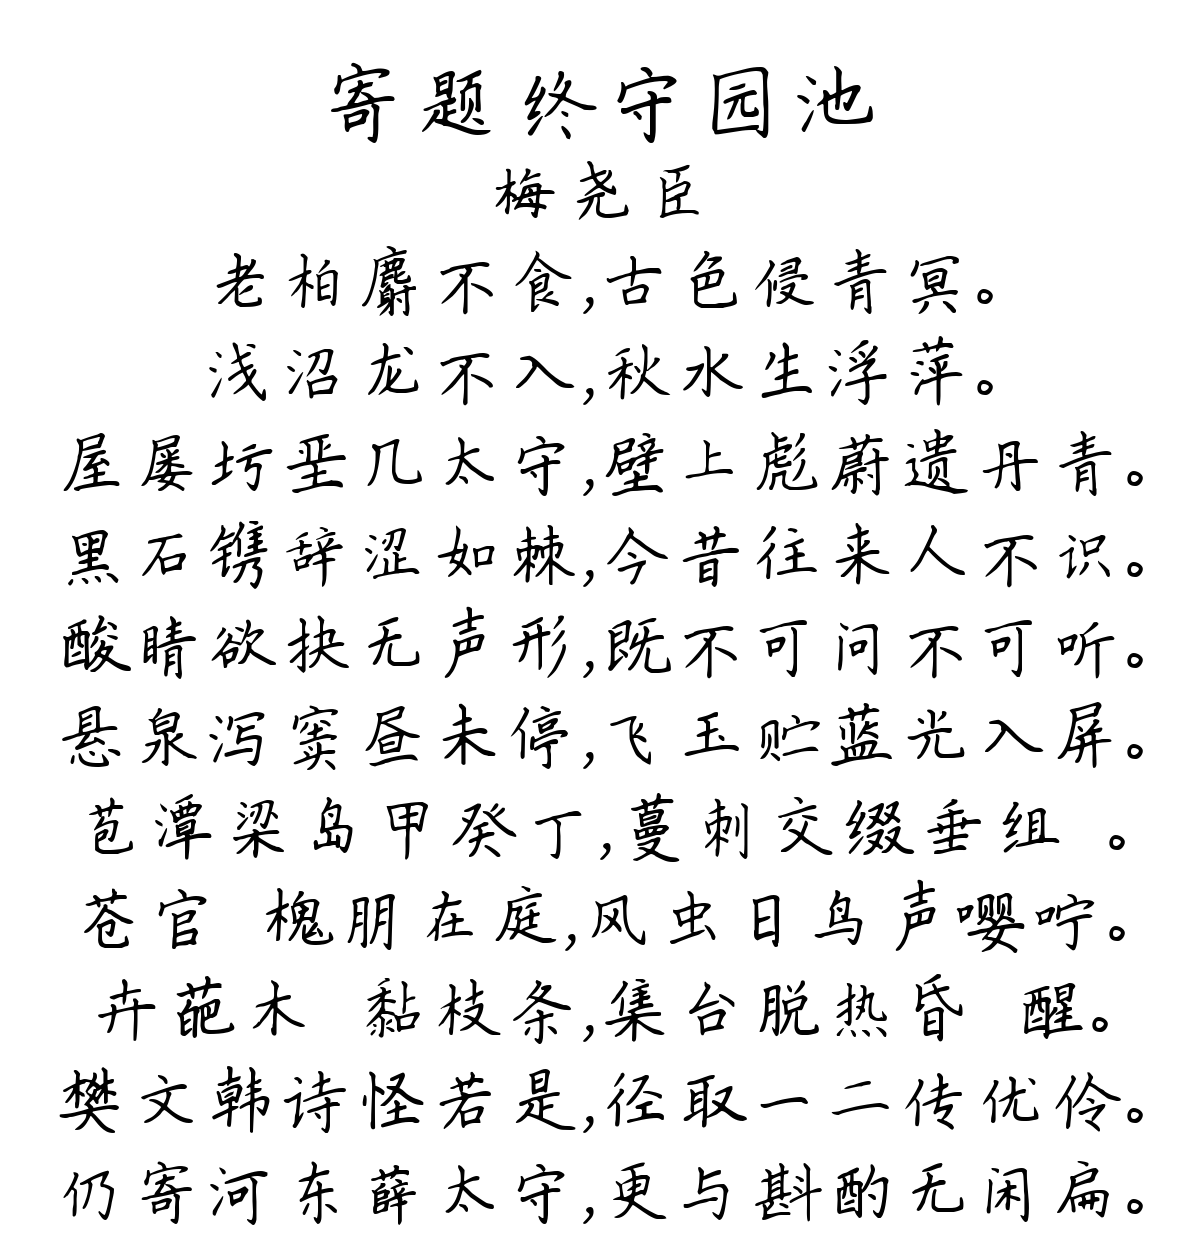 寄题终守园池
梅尧臣
老柏麝不食,古色侵青冥。
浅沼龙不入,秋水生浮萍。
屋屡圬垩几太守,壁上彪蔚遗丹青。
黑石镌辞涩如棘,今昔往来人不识。
酸睛欲抉无声形,既不可问不可听。
悬泉泻窦昼未停,飞玉贮蓝光入屏。
苞潭梁岛甲癸丁,蔓刺交缀垂组 。
苍官 槐朋在庭,风虫日鸟声嘤咛。
卉葩木 黏枝条,集台脱热昏 醒。
樊文韩诗怪若是,径取一二传优伶。
仍寄河东薛太守,更与斟酌无闲扁。